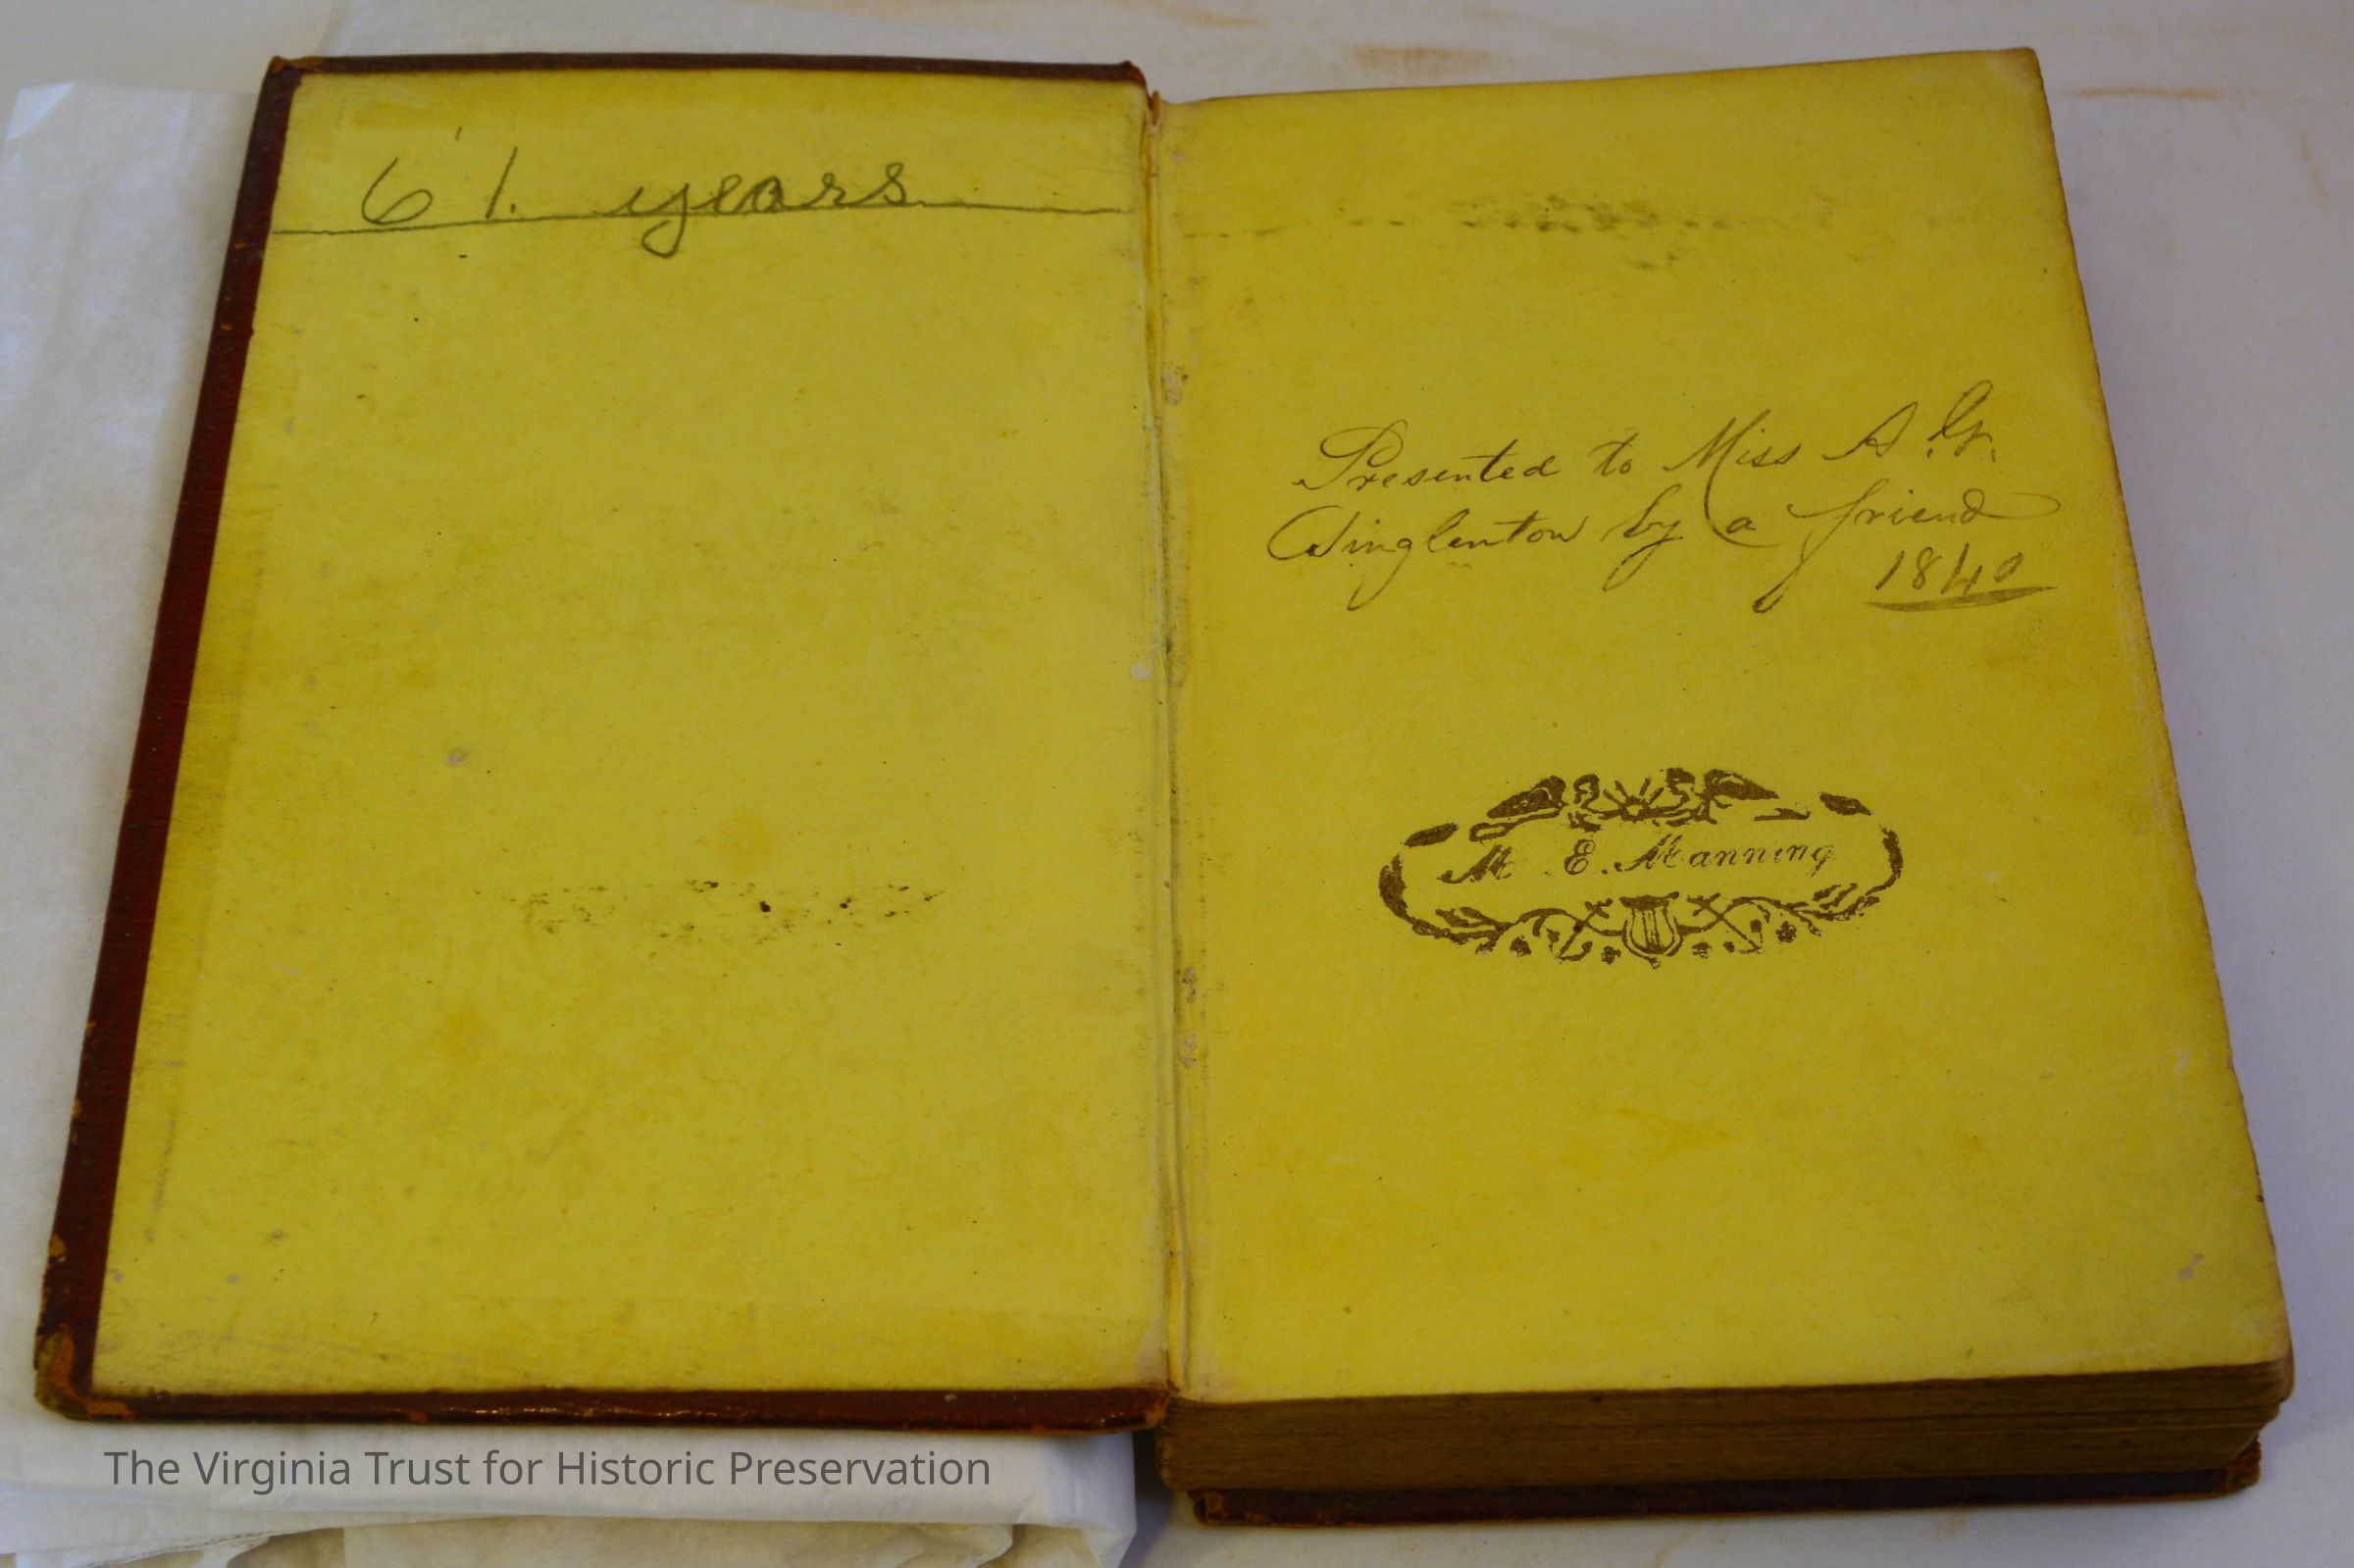 61. years
Presented to Miss A. G.
Singlenton by a friend
1840
M. E. Manning
The Virginia Trust for Historic Preservation